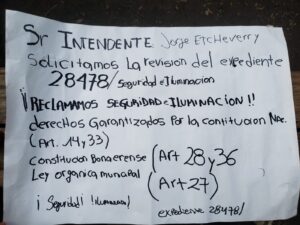 Sr INTENDENTE Jorge Etcheverry
Solicitamos La revision del expediente
28478/ Seguridad e Iluminacion
¡¡RECLAMAMOS SEGURIDAD e ILUMINACION!!
derechos Garantizados Por la constitucion Nac.
(Art. 14 y 33)
constitucion Bonaerense (Art 28 y 36
Ley organica municipal (Art 27)
¡Seguridad! Iluminacion!
expediente 28478/